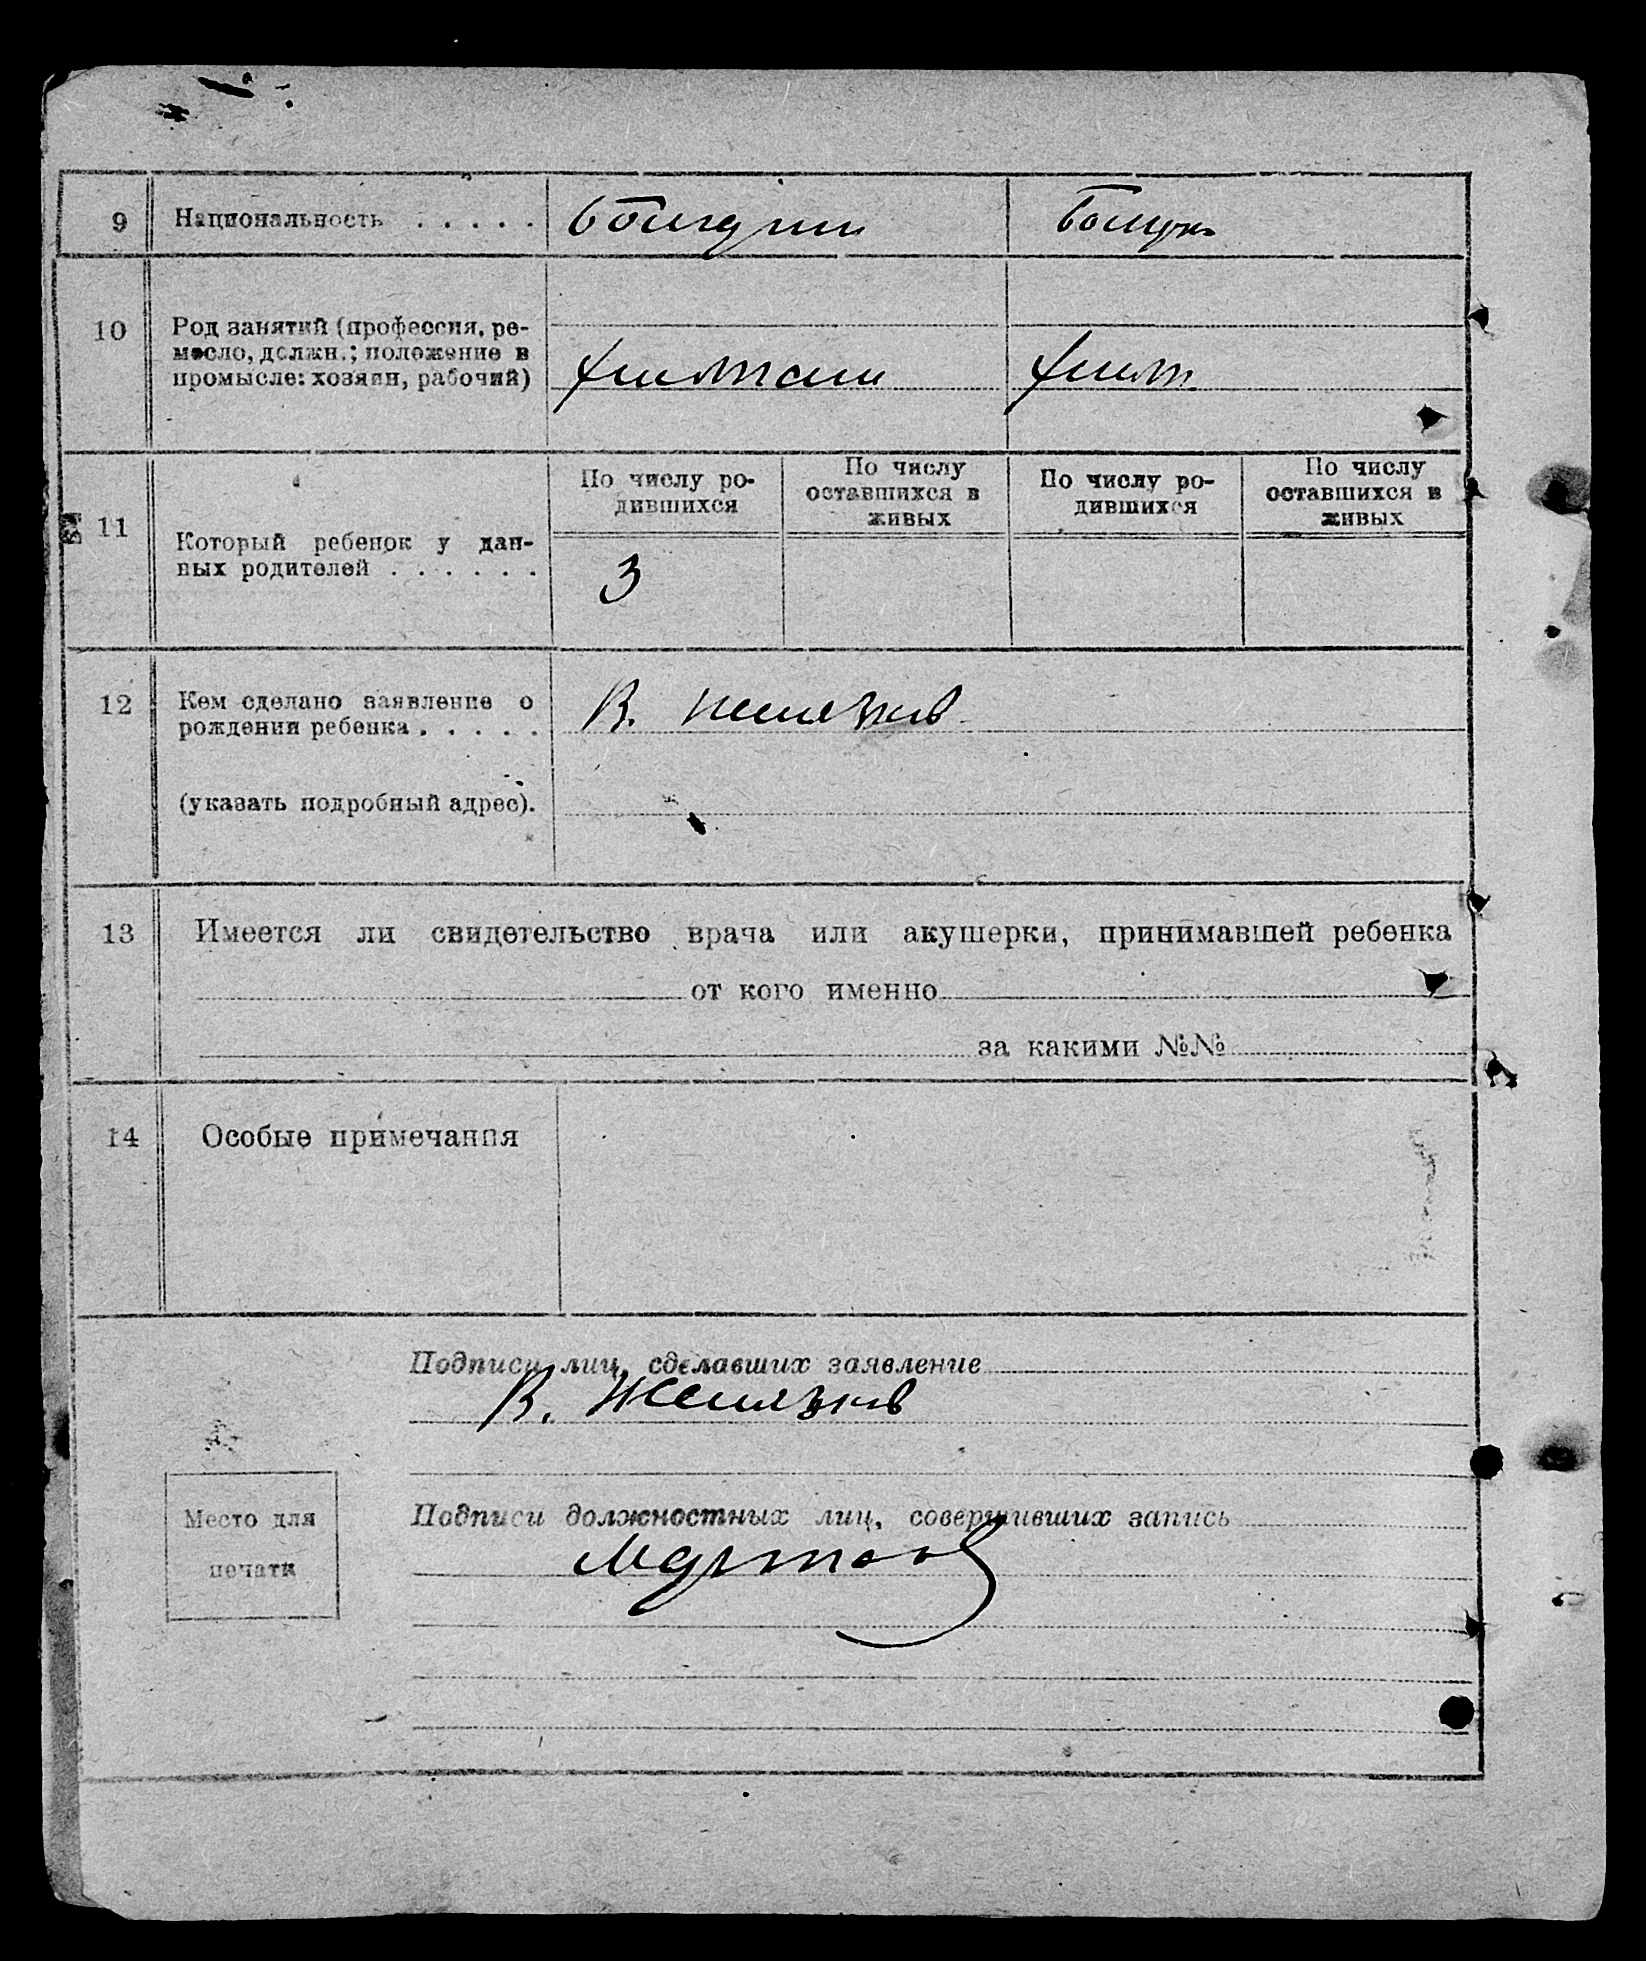 9 Национальность . . . . . болгарин болгарк
10 Род занятий (профессия, ре-
месло, должн.; положение в
промысле: хозяин, рабочий)
11 Который ребенок у дан-
ных родителей . . . . . .
По числу ро-
дившихся
По числу
оставшихся в
живых
По числу ро-
дившихся
По числу
оставшихся в
живых
3
12 Кем сделано заявление о
рождении ребенка . . . . .
В. Желязков
(указать подробный адрес).
13 Имеется ли свидетельство врача или акушерки, принимавшей ребенка
от кого именно
за какими №№
14 Особые примечания
Подписи лиц, сделавших заявление
В. Желязков
Место для
печати
Подписи должностных лиц, совершивших запись